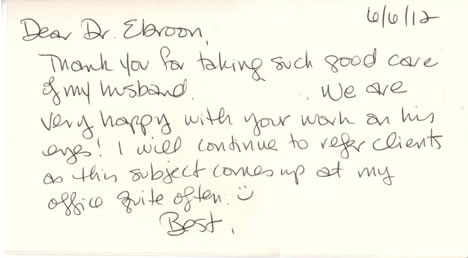 6/6/12
Dear Dr. Ebroon,
Thank you for taking such good care
of my husband. We are
very happy with your work on his
eyes! I will continue to refer clients
as this subject comes up at my
office quite often. ☺
Best,